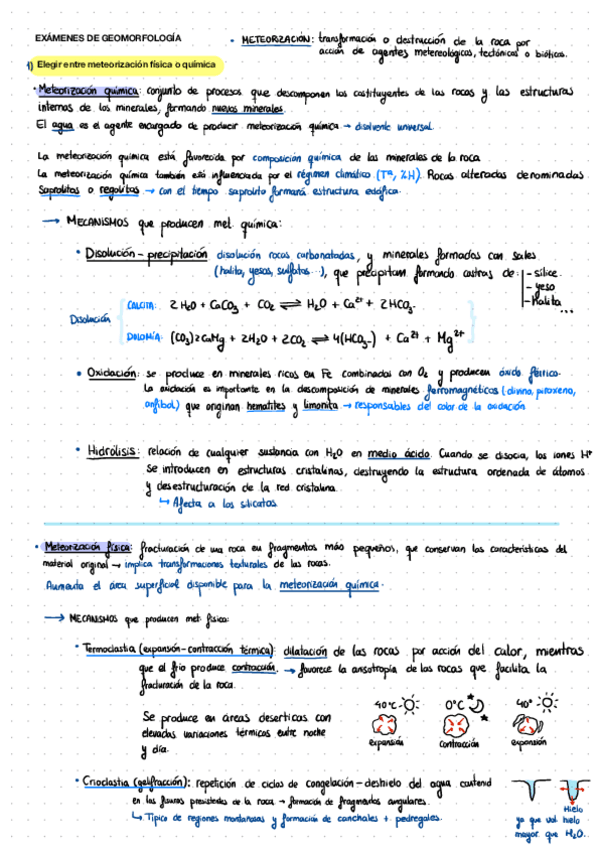 EXÁMENES DE GEOMORFOLOGÍA
• METEORIZACIÓN: transformación o destrucción de la roca por
acción de agentes metereológicos, tectónicos o bióticos.
1) Elegir entre meteorización física o química
• Meteorización química: conjunto de procesos que descomponen los costituyentes de las rocas y las estructuras
internas de los minerales, formando nuevos minerales.
El agua es el agente encargado de producir meteorización química → disolvente universal.
La meteorización química está favorecida por composición química de los minerales de la roca
La meteorización química también está influenciada por el régimen climático (Tª, %H). Rocas alteradas denominadas
saprolitos o regolitos → con el tiempo saprolito formará estructura edáfica.
→ MECANISMOS que producen met química:
• Disolución - precipitación disolución rocas carbonatadas, y minerales formados con sales
(halita, yesos, sulfatos...), que precipitan formando costras de: - sílice.
- yeso
- Halita
...
Disolución
CALCITA: 2 H₂O + CaCO₃ + CO₂ ⇌ H₂O + Ca²⁺ + 2HCO₃-
DOLOMÍA: (CO₃)2CaMg + 2H₂O + 2CO₂ ⇌ 4(HCO₃-) + Ca²⁺ + Mg²⁺
• Oxidación: se produce en minerales ricos en Fe combinados con O₂ y producen óxido férrico.
La oxidación es importante en la descomposición de minerales ferromagnéticos (olivino, piroxeno,
anfíbol) que originan hematites y limonita → responsables del color de la oxidación
• Hidrólisis: relación de cualquier sustancia con H₂O en medio ácido. Cuando se disocia, los iones H⁺
se introducen en estructuras cristalinas, destruyendo la estructura ordenada de átomos
y desestructuración de la red cristalina.
↳ Afecta a los silicatos
• Meteorización física: fracturación de una roca en fragmentos más pequeños, que conservan las características del
material original → implica transformaciones texturales de las rocas.
Aumenta el área superficial disponible para la meteorización química.
→ MECANISMOS que producen met física:
• Termoclastia (expansión-contracción térmica): dilatación de las rocas por acción del calor, mientras
que el frío produce contracción. → favorece la anisotropía de las rocas que facilita la
fracturación de la roca.
Se produce en áreas deserticas con
elevadas variaciones térmicas entre noche
y día.
40°C
0°C
40°
expansión
contracción
expansión
• Crioclastia (gelifracción): repetición de ciclos de congelación-deshielo del agua contenid
en las fisuras preexistentes de la roca → formación de fragmentos angulares.
↳ Típico de regiones montañosas y formación de canchales + pedregales.
Hielo
ya que vol hielo
mayor que H₂O.